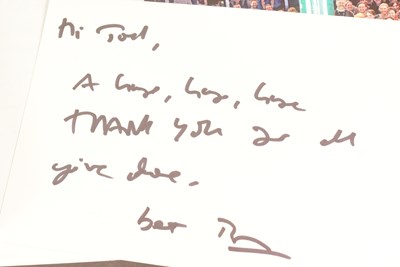 Hi Tod,
A huge, huge, huge
THANK YOU for all
you've done.
best